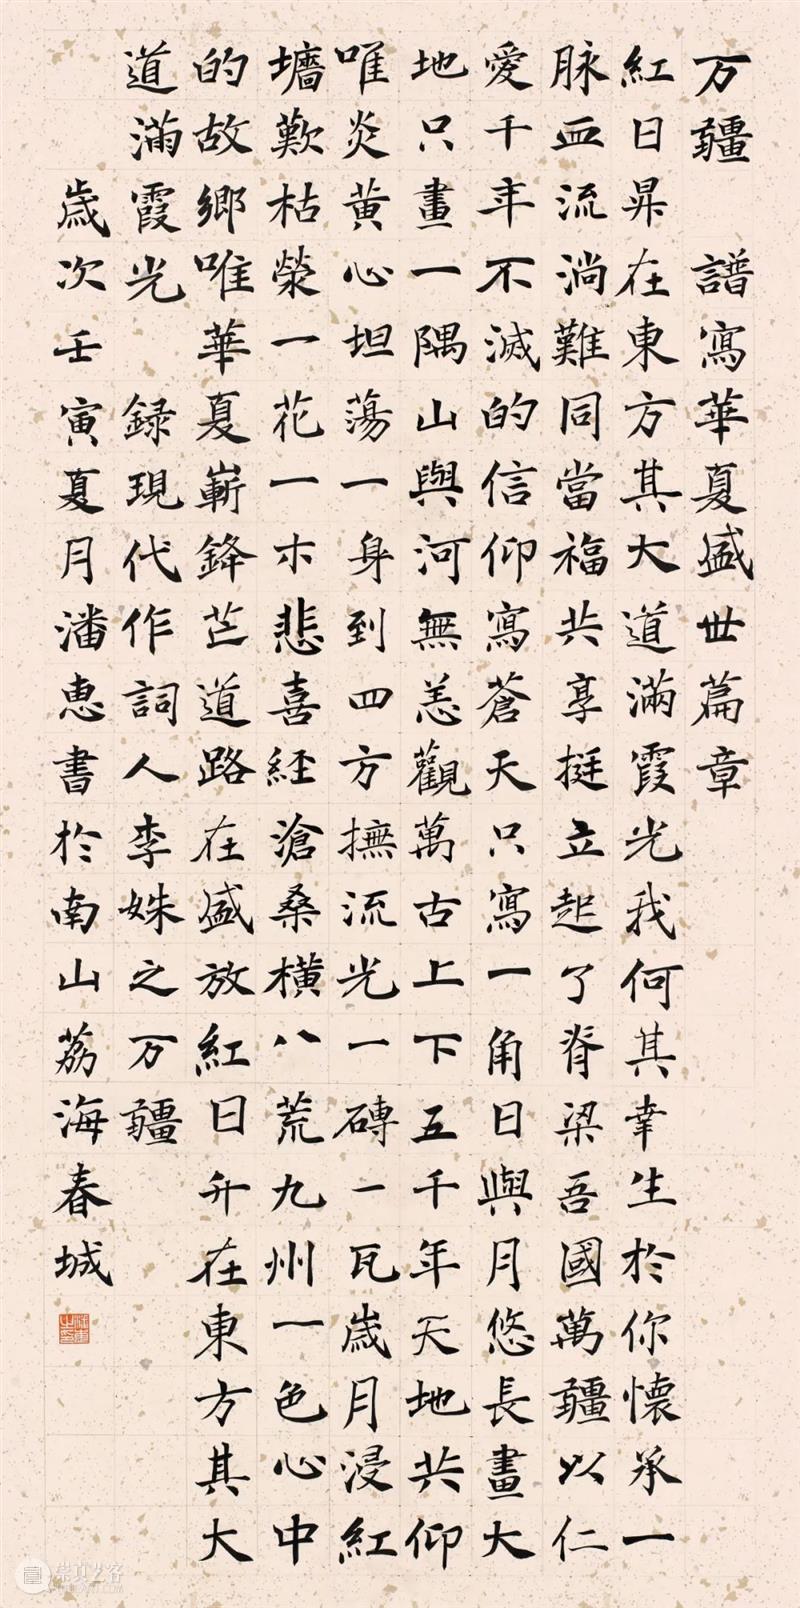 万疆 譜寫華夏盛世篇章
紅日昇在東方其大道滿霞光我何其幸生於你懷承一
脉血流淌難同當福共享挺立起了脊梁吾國萬疆以仁
愛千年不滅的信仰寫蒼天只寫一角日與月悠長畫大
地只畫一隅山與河無恙觀萬古上下五千年天地共仰
唯炎黄心坦蕩一身到四方撫流光一磚一瓦歲月浸紅
墻歎枯榮一花一木悲喜經滄桑橫八荒九州一色心中
的故鄉唯華夏嶄鋒芒道路在盛放紅日升在東方其大
道滿霞光 録現代作詞人李姝之万疆
歲次壬寅夏月潘惠書於南山荔海春城
崇真艺客